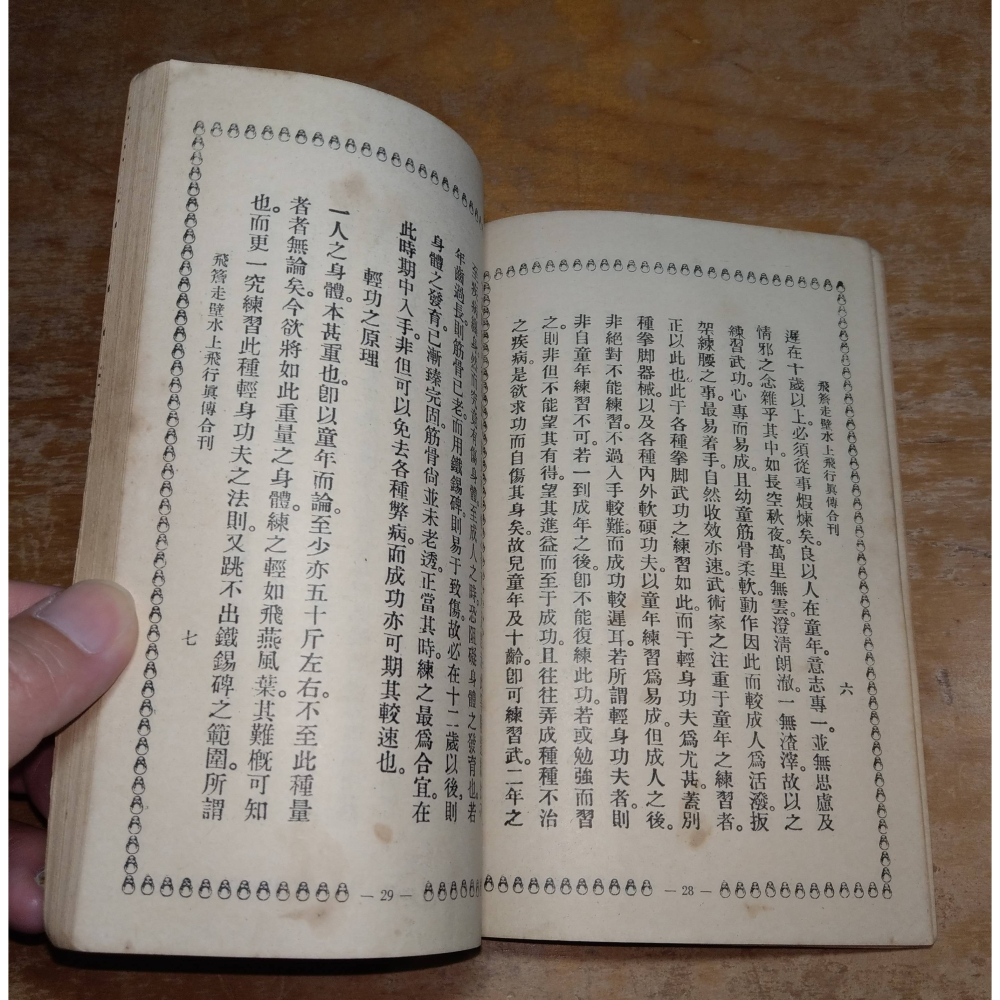 飛簷走壁水上飛行眞傳合刊
六
遲在十歲以上必須從事煆煉矣。良以人在童年。意志專一。並無思慮及
情邪之念雜乎其中。如長空秋夜。萬里無雲。澄淸朗澈。一無渣滓。故以之
練習武功。心專而易成。且幼童筋骨柔軟。動作因此而較成人爲活潑扳
架練腰之事。最易着手。自然收效亦速。武術家之注重于童年之練習者。
正以此也。此于各種拳脚武功之練習如此。而于輕身功夫爲尤甚。蓋別
種拳脚器械。以及各種內外軟硬功夫。以童年練習爲易成。但成人之後。
非絕對不能練習。不過入手較難。而成功較遲耳。若所謂輕身功夫者。則
非自童年練習不可。若一到成年之後。卽不能復練此功。若或勉強而習
之。則非但不能望其有得。望其進益而至于成功。且往往弄成種種不治
之疾病。是欲求功而自傷其身矣。故兒童年及十齡。卽可練習武二年之
— 28 —
身體。至成人之時。恐阻礙身體之發育也。若
年齒過長。則筋骨已老。而用鐵錫碑。則易于致傷。故必在十二歲以後。則
身體之發育已漸臻完固。筋骨尙並未老透。正當其時。練之最爲合宜。在
此時期中入手。非但可以免去各種弊病。而成功亦可期其較速也。
輕功之原理
一人之身體。本甚重也。卽以童年而論。至少亦五十斤左右。不至此種量
者者無論矣。今欲將如此重量之身體。練之輕如飛燕風葉。其難槪可知
也。而更一究練習此種輕身功夫之法則。又跳不出鐵錫碑之範圍。所謂
飛簷走壁水上飛行眞傳合刊
七
— 29 —